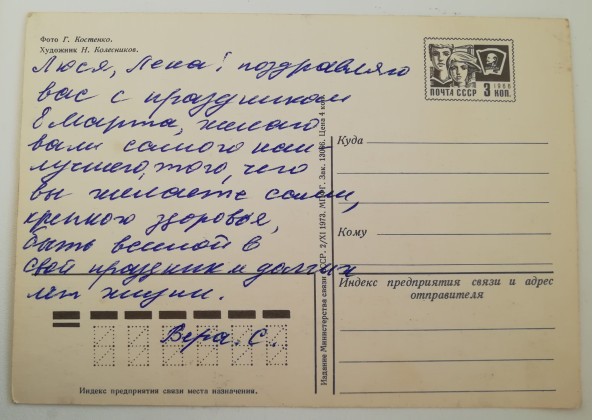 Фото Г. Костенко.
Художник Н. Колесников.
Люся, Лена! поздравляю
вас с праздником
8 Марта, желаю
вам самого наи-
лучшего, того, чего
вы желаете сами,
крепкого здоровья,
быть весной в
свой праздник и долгих
лет жизни.
Вера. С.
Индекс предприятия связи места назначения.
Издание Министерства связи СССР. 2/XI 1973. МПФГ. Зак. 13036. Цена 4 коп.
ПОЧТА СССР 3 КОП.
1966
Куда
Кому
Индекс предприятия связи и адрес
отправителя